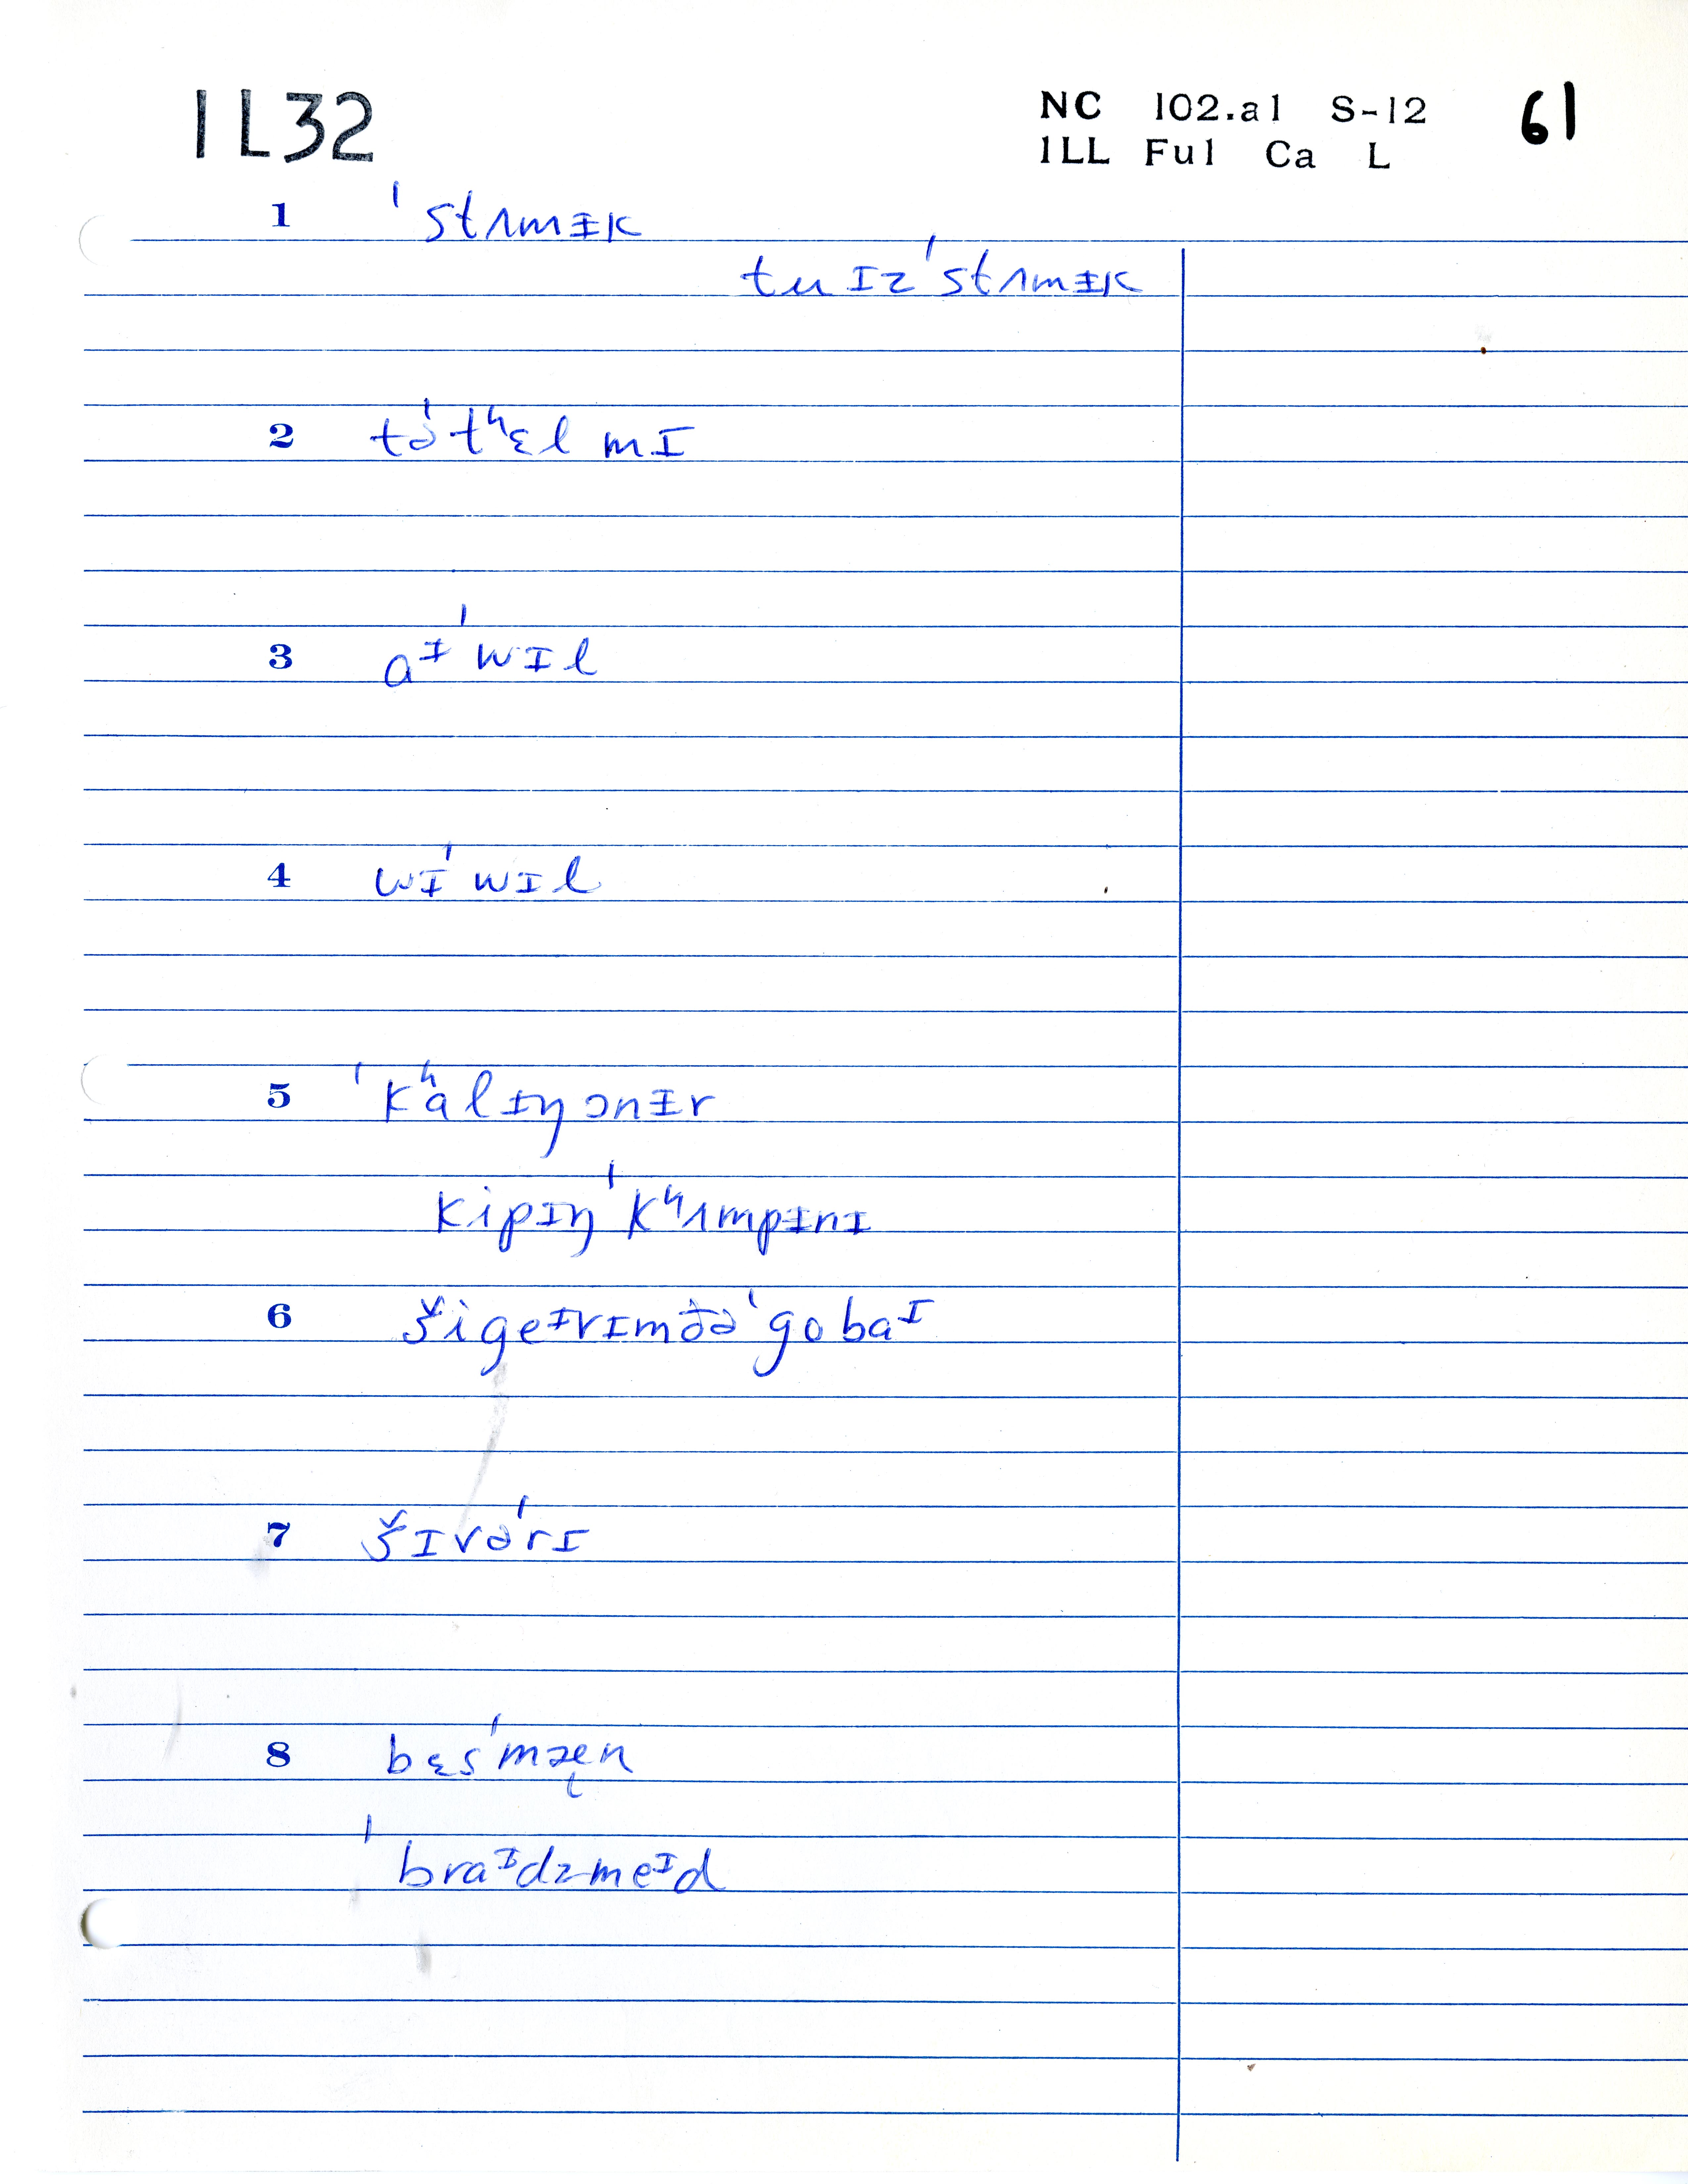 IL32
NC 102.a1 S-12 61
ILL Ful Ca L
1 ˈstʌmᵻk
tu ɪzˈstʌmᵻk
2 təˈtʰɛl mɪ
3 aᵻˈwɪl
4 wɪˈwɪl
5 ˈkʰalᵻŋ ɔnᵻr
kipɪŋˈkʰʌmpᵻnɪ
6 šigeᵻvɪmðəˈgobaɪ
7 šɪvəˈrɪ
8 bɛsˈmæ̨n
ˈbraɪdzmeɪd